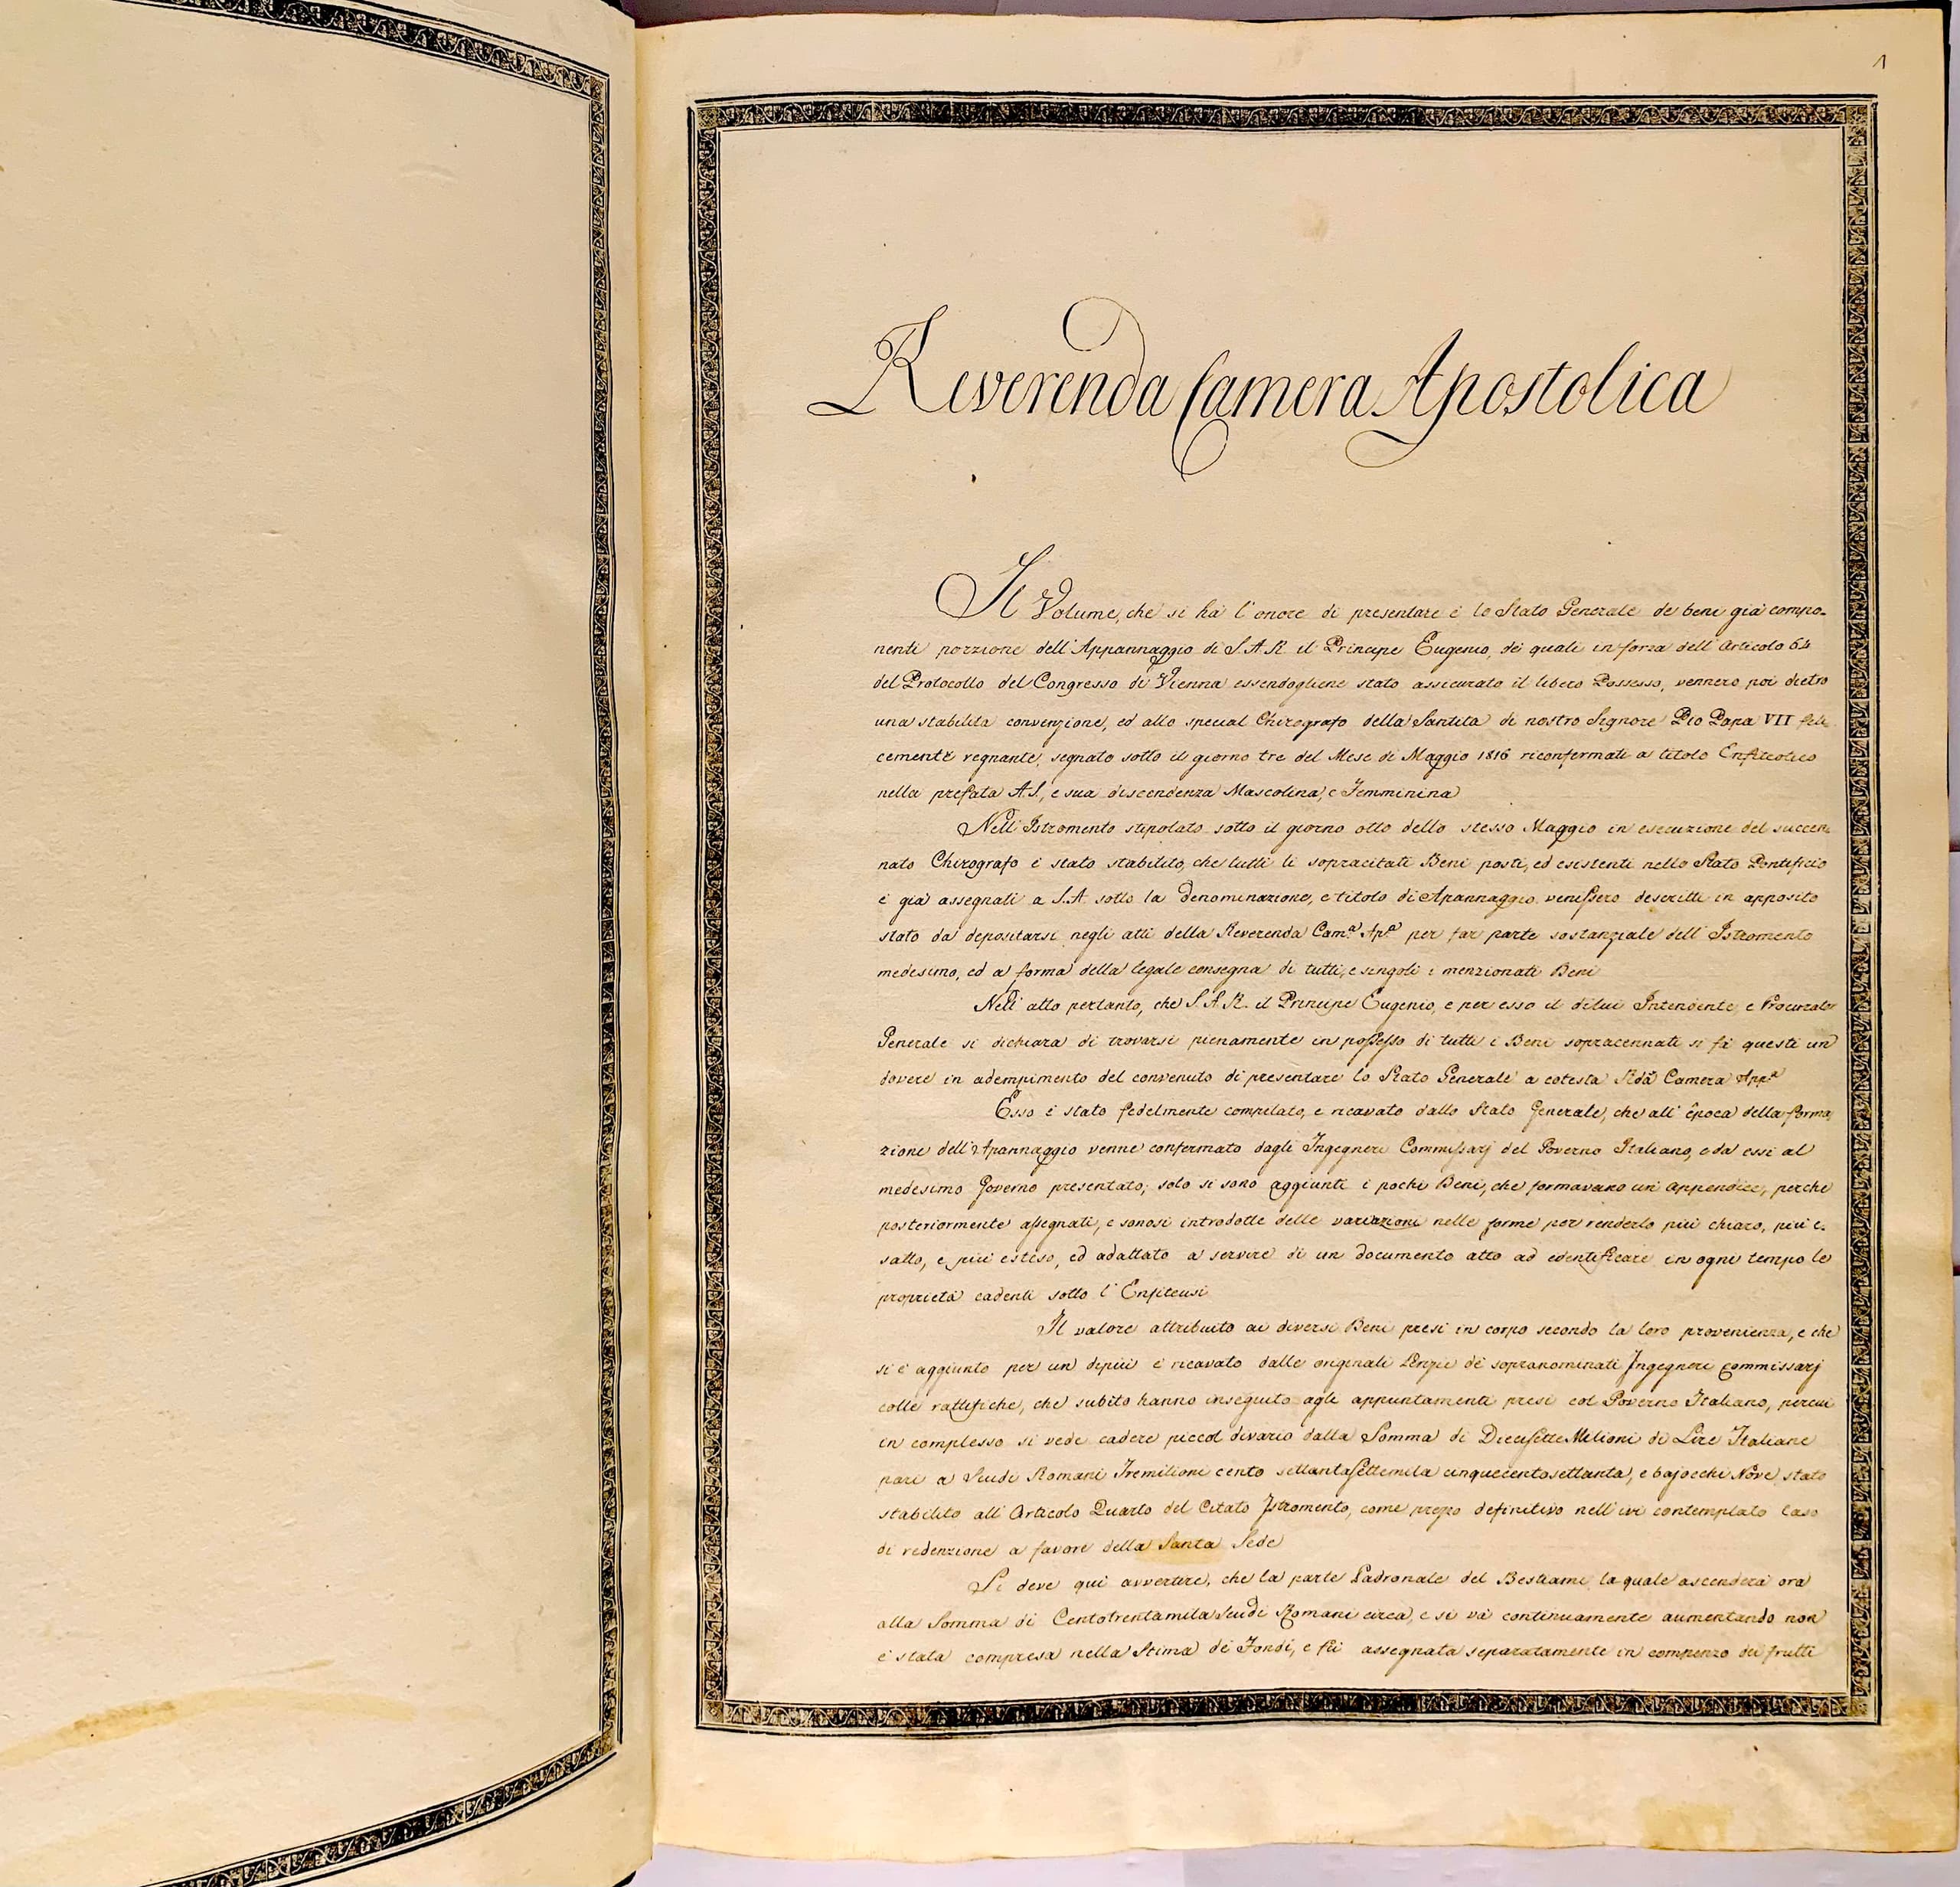 1
Reverenda Camera Apostolica
Il Volume, che si ha l'onore di presentare è lo Stato Generale de beni già compo-
nenti porzione dell'Appannaggio di S.A.R. il Principe Eugenio, dei quali in forza dell'Articolo 64
del Protocollo del Congresso di Vienna essendogliene stato assicurato il libero Possesso, vennero poi dietro
una stabilita convenzione, ed allo special Chirografo della Santità di nostro Signore Pio Papa VII feli-
cemente regnante, segnato sotto il giorno tre del Mese di Maggio 1816 riconfermati a titolo Enfiteotico
nella prefata A.S., e sua discendenza Mascolina, e Femminina
Nell'Istromento stipolato sotto il giorno otto dello stesso Maggio in esecuzione del succen-
nato Chirografo è stato stabilito, che tutti li sopracitati Beni posti, ed esistenti nello Stato Pontificio
e già assegnati a S.A. sotto la denominazione, e titolo di Apannaggio venissero descritti in apposito
stato da depositarsi negli atti della Reverenda Cam.ª Ap.ª per far parte sostanziale dell'Istromento
medesimo, ed a forma della legale consegna di tutti, e singoli i menzionati Beni
Nell'atto pertanto, che S.A.R. il Principe Eugenio, e per esso il dilui Intendente, e Procurator
Generale si dichiara di trovarsi pienamente in possesso di tutti i Beni sopracennati si fà questi un
dovere in adempimento del convenuto di presentare lo Stato Generale a cotesta Rda Camera App.ª
Esso è stato fedelmente compilato, e ricavato dallo Stato Generale, che all'êpoca della forma
zione dell'Apannaggio venne confermato dagli Ingegneri Commissarj del Governo Italiano, e da essi al
medesimo Governo presentato; solo si sono aggiunti i pochi Beni, che formavano un'Appendice, perchè
posteriormente assegnati, e sonosi introdotte delle variazioni nelle forme per renderlo più chiaro, più e-
satto, e più esteso, ed adattato a servire di un documento atto ad identificare in ogni tempo le
proprietà cadenti sotto l'Enfiteusi
Il valore attribuito ai diversi Beni presi in corpo secondo la loro provenienza, e che
si è aggiunto per un dipiù è ricavato dalle originali Perizie dei sopranominati Ingegneri Commissarj
colle rattifiche, che subito hanno inseguito agli appuntamenti presi col Governo Italiano, percui
in complesso si vede cadere piccol divario dalla Somma di Diecisette Milioni di Lire Italiane
pari a Scudi Romani Tremilioni cento settantasettemila cinquecentosettanta, e bajocchi Nove, stato
stabilito all'Articolo Quarto del Citato Istromento, come prezzo definitivo nell'ivi contemplato Caso
di redenzione a favore della Santa Sede
Si deve qui avvertire, che la parte Padronale del Bestiame, la quale ascenderà ora
alla Somma di Centotrentamila Scudi Romani circa, e si và continuamente aumentando non
è stata compresa nella Stima dei Fondi, e fù assegnata separatamente in compenzo dei frutti